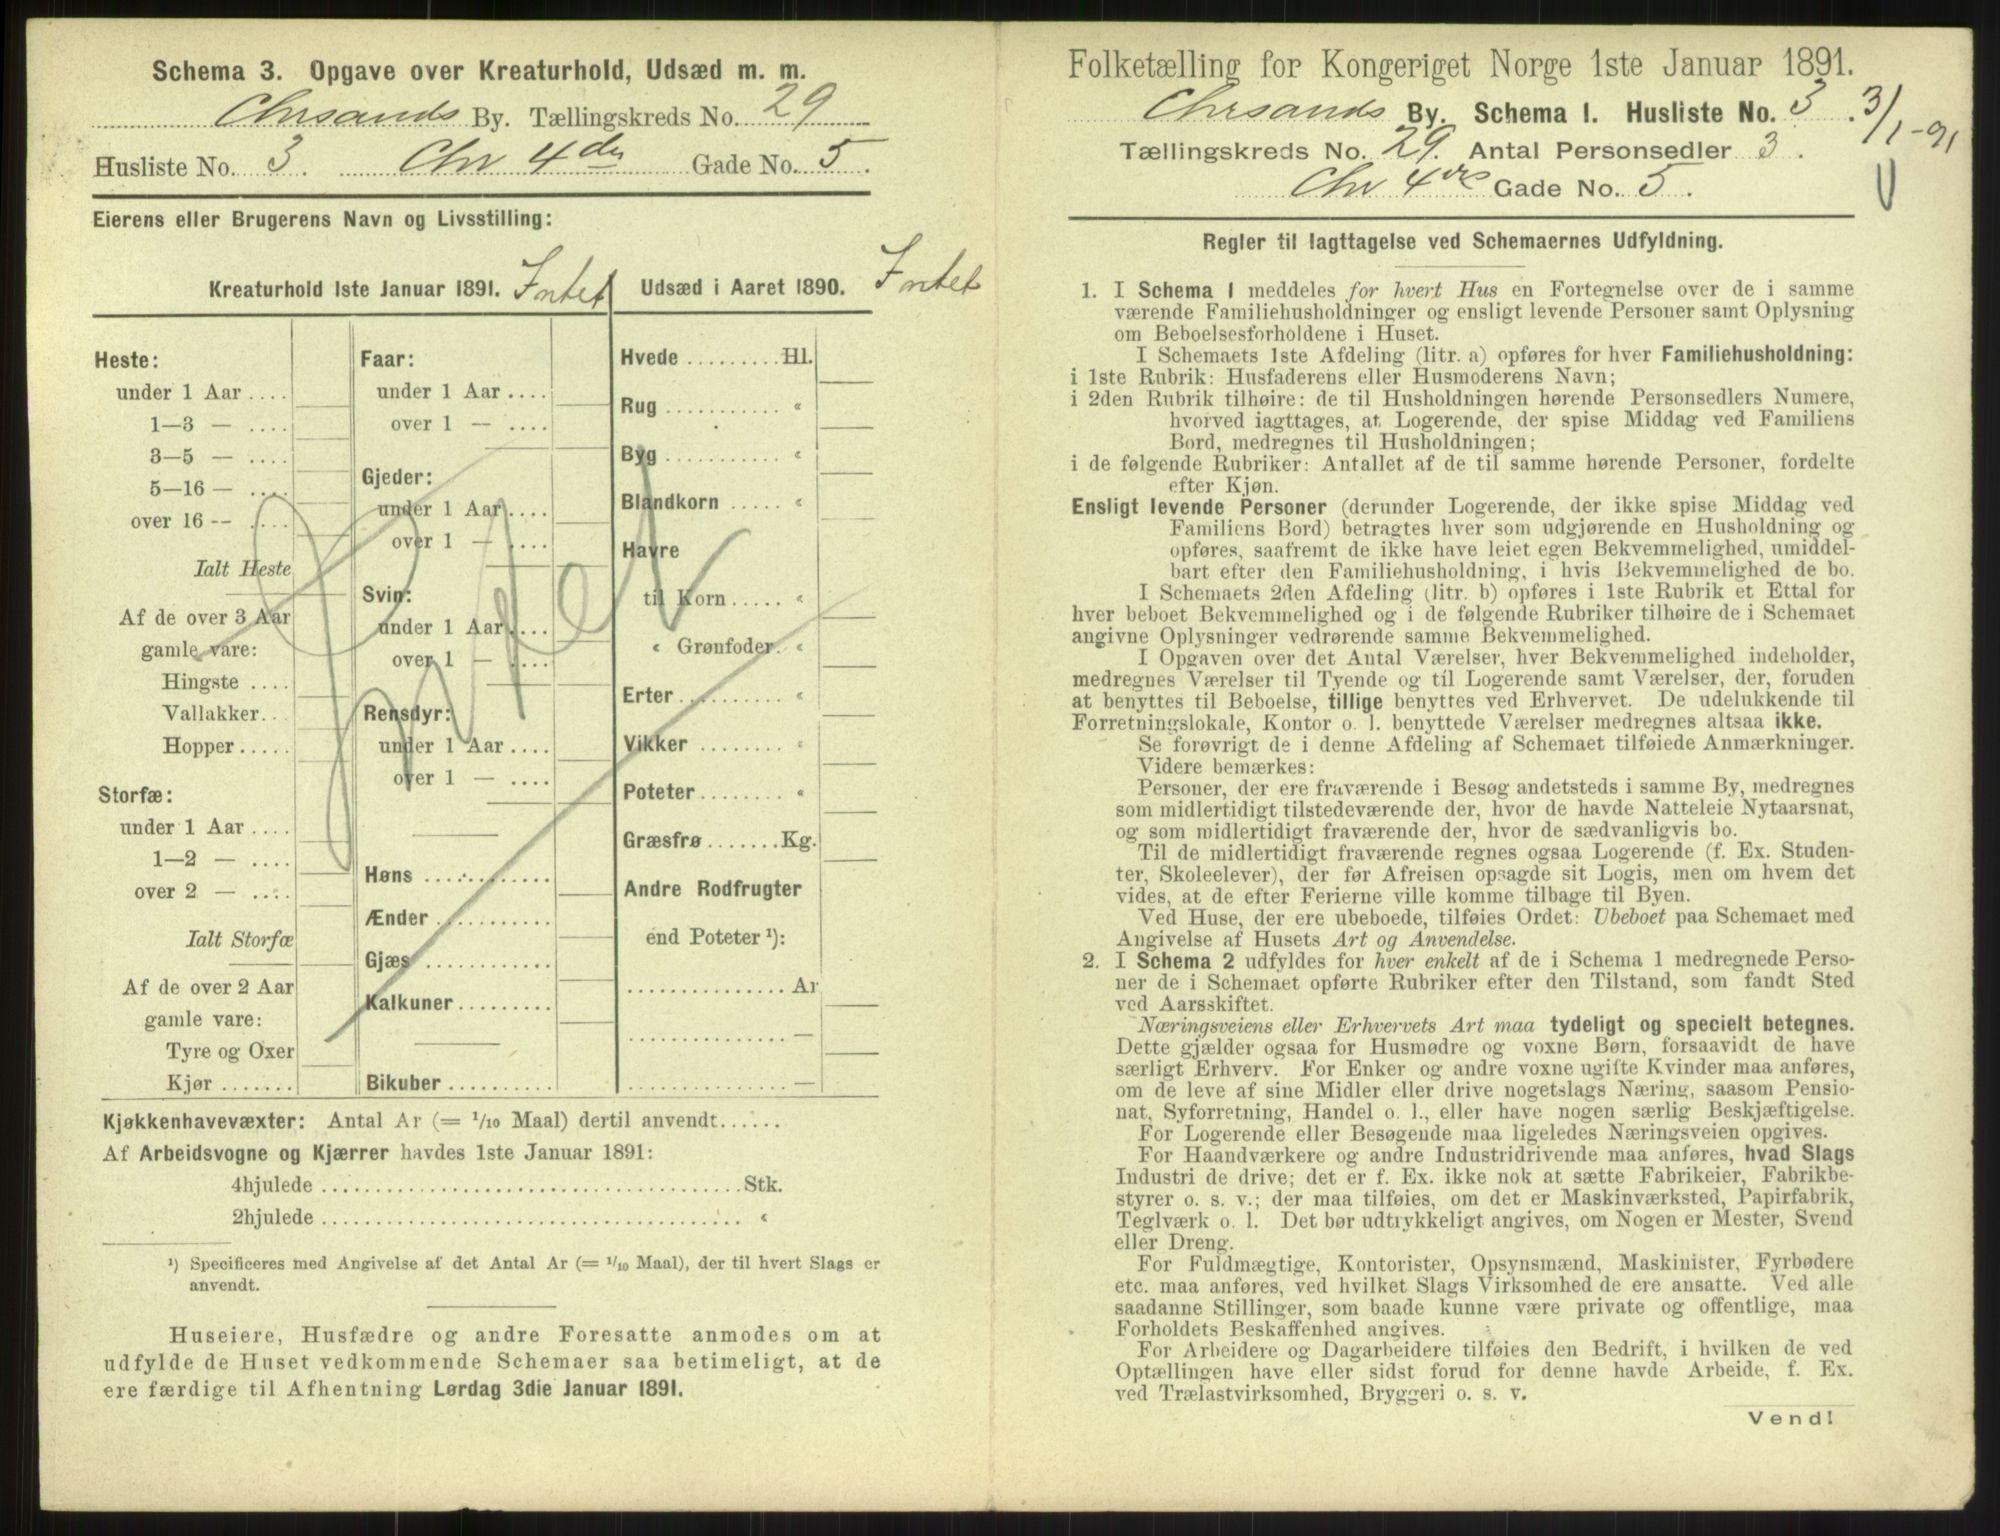 Schema 3. Opgave over Kreaturhold, Udsæd m. m.
Chrsands By. Tællingskreds No. 29
Husliste No. 3. Chr 4des Gade No. 5.
Eierens eller Brugerens Navn og Livsstilling:
Kreaturhold 1ste Januar 1891. Intet
Heste:
under 1 Aar....
1—3 — ....
3—5 — ....
5—16 — ....
over 16 -- ....
Ialt Heste
Af de over 3 Aar
gamle vare:
Hingste ....
Vallakker...
Hopper.....
Storfæ:
under 1 Aar ....
1—2 — ....
over 2 — ....
Ialt Storfæ
Af de over 2 Aar
gamle vare:
Tyre og Oxer
Kjør .......
Faar:
under 1 Aar....
over 1 — ....
Gjeder:
under 1 Aar....
over 1 — ....
Svin:
under 1 Aar....
over 1 — ....
Rensdyr:
under 1 Aar....
over 1 — ....
Høns ............
Ænder ...........
Gjæs ............
Kalkuner.........
Bikuber..........
Udsæd i Aaret 1890. Intet
Hvede .........Hl.
Rug ........... «
Byg ........... «
Blandkorn ..... «
Havre
til Korn..... «
« Grønfoder. «
Erter ......... «
Vikker ........ «
Poteter........ «
Græsfrø .......Kg.
Andre Rodfrugter
end Poteter ¹):
............... Ar
............... —
............... —
Kjøkkenhavevæxter: Antal Ar (= 1/10 Maal) dertil anvendt......
Af Arbeidsvogne og Kjærrer havdes 1ste Januar 1891:
4hjulede .......................................Stk.
2hjulede ....................................... «
¹) Specificeres med Angivelse af det Antal Ar (= 1/10 Maal), der til hvert Slags er
anvendt.
Huseiere, Husfædre og andre Foresatte anmodes om at
udfylde de Huset vedkommende Schemaer saa betimeligt, at de
ere færdige til Afhentning Lørdag 3die Januar 1891.
Folketælling for Kongeriget Norge 1ste Januar 1891.
Chrsands By. Schema I. Husliste No. 3. 3/1-91
Tællingskreds No. 29. Antal Personsedler 3.
Chr 4des Gade No. 5.
Regler til Iagttagelse ved Schemaernes Udfyldning.
1. I Schema 1 meddeles for hvert Hus en Fortegnelse over de i samme
værende Familiehusholdninger og ensligt levende Personer samt Oplysning
om Beboelsesforholdene i Huset.
I Schemaets 1ste Afdeling (litr. a) opføres for hver Familiehusholdning:
i 1ste Rubrik: Husfaderens eller Husmoderens Navn;
i 2den Rubrik tilhøire: de til Husholdningen hørende Personsedlers Numere,
hvorved iagttages, at Logerende, der spise Middag ved Familiens
Bord, medregnes til Husholdningen;
i de følgende Rubriker: Antallet af de til samme hørende Personer, fordelte
efter Kjøn.
Ensligt levende Personer (derunder Logerende, der ikke spise Middag ved
Familiens Bord) betragtes hver som udgjørende en Husholdning og
opføres, saafremt de ikke have leiet egen Bekvemmelighed, umiddel-
bart efter den Familiehusholdning, i hvis Bekvemmelighed de bo.
I Schemaets 2den Afdeling (litr. b) opføres i 1ste Rubrik et Ettal for
hver beboet Bekvemmelighed og i de følgende Rubriker tilhøire de i Schemaet
angivne Oplysninger vedrørende samme Bekvemmelighed.
I Opgaven over det Antal Værelser, hver Bekvemmelighed indeholder,
medregnes Værelser til Tyende og til Logerende samt Værelser, der, foruden
at benyttes til Beboelse, tillige benyttes ved Erhvervet. De udelukkende til
Forretningslokale, Kontor o. l. benyttede Værelser medregnes altsaa ikke.
Se forøvrigt de i denne Afdeling af Schemaet tilføiede Anmærkninger.
Videre bemærkes:
Personer, der ere fraværende i Besøg andetsteds i samme By, medregnes
som midlertidigt tilstedeværende der, hvor de havde Natteleie Nytaarsnat,
og som midlertidigt fraværende der, hvor de sædvanligvis bo.
Til de midlertidigt fraværende regnes ogsaa Logerende (f. Ex. Studen-
ter, Skoleelever), der før Afreisen opsagde sit Logis, men om hvem det
vides, at de efter Ferierne ville komme tilbage til Byen.
Ved Huse, der ere ubeboede, tilføies Ordet: Ubeboet paa Schemaet med
Angivelse af Husets Art og Anvendelse.
2. I Schema 2 udfyldes for hver enkelt af de i Schema 1 medregnede Perso-
ner de i Schemaet opførte Rubriker efter den Tilstand, som fandt Sted
ved Aarsskiftet.
Næringsveiens eller Erhvervets Art maa tydeligt og specielt betegnes.
Dette gjælder ogsaa for Husmødre og voxne Børn, forsaavidt de have
særligt Erhverv. For Enker og andre voxne ugifte Kvinder maa anføres,
om de leve af sine Midler eller drive nogetslags Næring, saasom Pensio-
nat, Syforretning, Handel o. l., eller have nogen særlig Beskjæftigelse.
For Logerende eller Besøgende maa ligeledes Næringsveien opgives.
For Haandværkere og andre Industridrivende maa anføres, hvad Slags
Industri de drive; det er f. Ex. ikke nok at sætte Fabrikeier, Fabrikbe-
styrer o. s. v.; der maa tilføies, om det er Maskinværksted, Papirfabrik,
Teglværk o. l. Det bør udtrykkeligt angives, om Nogen er Mester, Svend
eller Dreng.
For Fuldmægtige, Kontorister, Opsynsmænd, Maskinister, Fyrbødere
etc. maa anføres, ved hvilket Slags Virksomhed de ere ansatte. Ved alle
saadanne Stillinger, som baade kunne være private og offentlige, maa
Forholdets Beskaffenhed angives.
For Arbeidere og Dagarbeidere tilføies den Bedrift, i hvilken de ved
Optællingen have eller sidst forud for denne havde Arbeide, f. Ex.
ved Trælastvirksomhed, Bryggeri o. s. v.
Vend!